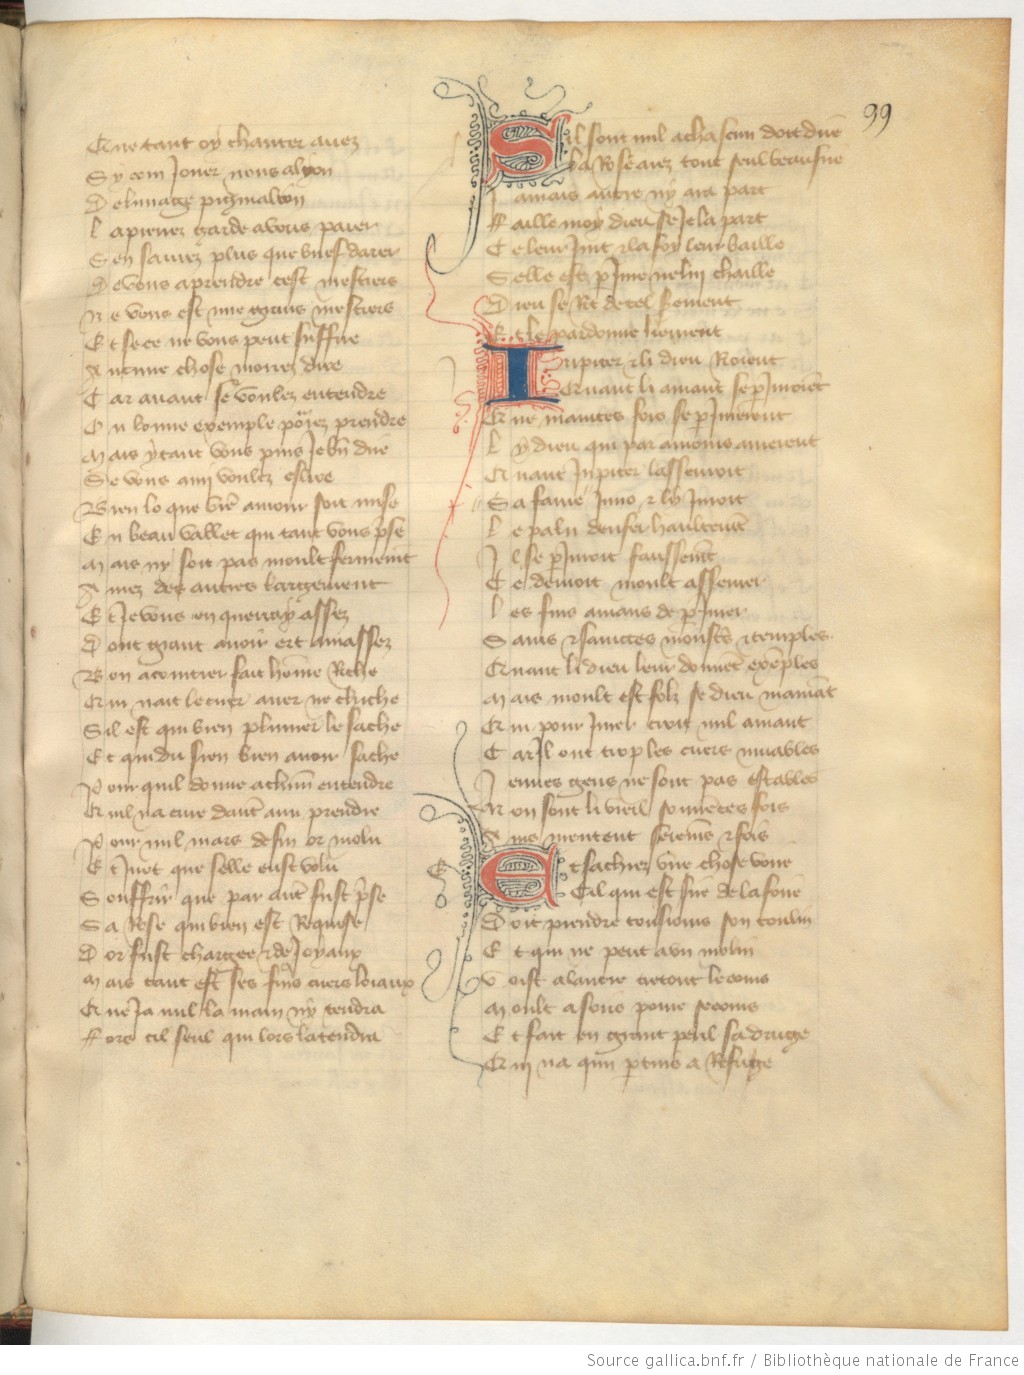 99
Que tant oy chanter auez
Sy com Jouer nous alyon
De limaige pigmalion
La prenez garde a vous parer
Sen saurez plus que buef darer
De vous aprendre cest mestiers
Ne vous est mie grans mestiers
Et se ce ne vous peut suffire
Aucune chose mouez dire
Car auant se voulez entendre
On bonne exemple poez prendre
Mais ytant vous puis Je bn dire
Se vous amy voulez eslire
Bien lo que vre amour soit mise
En beau vallet qui tant vous prise
Mais ny soit pas moult fermemt
Amez des autres largement
Et Je vous en querray assez
Dont grant auoir ert amassez
Bon acointier fait homme Riche
Qui nait le cuer auer ne chiche
Sil est qui bien plumer le sache
Et qui du sien bien auoir sache
Pour quil donne achun entendre
Quil na cure dautruy prendre
Pour mil mars de fin or molu
Et Juret que selle eust volu
Souffrir que par aut fust prise
Sa Rose qui bien est Requise
Dor fust chargee & de Joyaux
Mais tant est ses fins cuers loiaux
Que Ja nul la main ny tendra
Fors cil seul qui lors la tendra
Sil sont mil a chascun doit dire
La Rose auez tout seul beau sire
Jamais autre ny ara part
Faille moy dieu se Je la part
Ce leur Jurt & la foy leur baille
Selle est pJure ne lui chaille
Dieu se Rit de tel serment
Et le pardonne liement
Jupiter & li dieu Rioient
Quant li amant se pJuroiet
Et maintes fois se pJurerent
Ly dieu qui par amours amerent
Quant Jupiter lasseuroit
Sa fame Juno & ly Juroit
Le palu denfer haultemt
Jl se pJuroit faussemt
Ce deuroit moult asseurer
Les fins amans de pJurer
Sains & sainctes moustiers & temples
Quant li dieu leur donnet exemples
Mais moult est folz se dieu mamant
Qui pour Jurer croit nul amant
Car Jl ont trop les cuers muables
Jennes gens ne sont pas estables
Non sont li vieil souuetes fois
Ains mentent seremes & fois
Et sachiez vne chose voire
Cil qui est sire de la foire
Doit prendre tousiours son toulin
Et qui ne peut a vn molin
Voist a lautre trestout le cours
Moult a souris poure secours
Et fait en grant peril sa druge
Qui na qun ptuis a Refuge
Source gallica.bnf.fr / Bibliothèque nationale de France